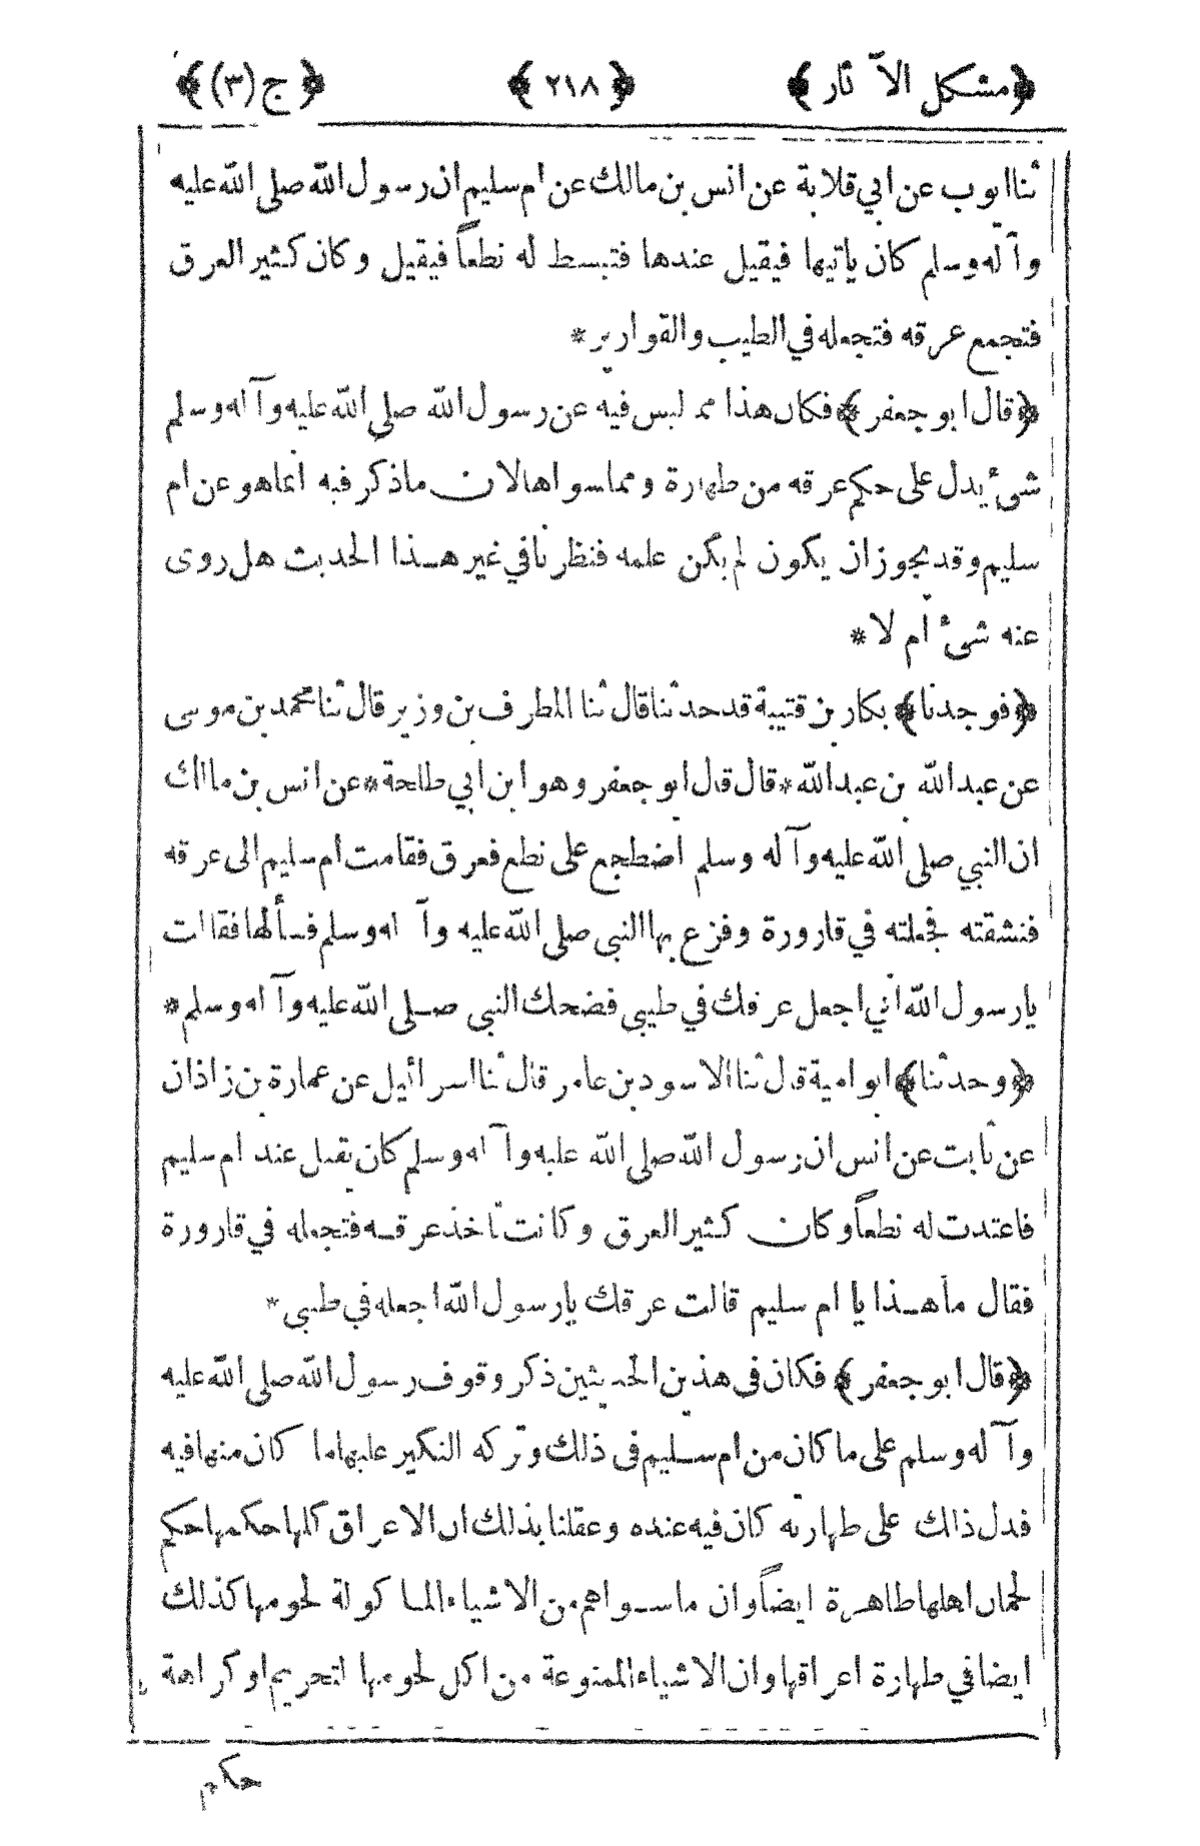 ﴿مشكل الآثار﴾ ﴿٢١٨﴾ ﴿ج(٣)﴾
ثنا ايوب عن ابي قلابة عن انس بن مالك عن ام سليم ان رسول الله صلى الله عليه
وآله وسلم كان ياتيها فيقيل عندها فتبسط له نطعاً فيقيل وكان كثير العرق
فتجمع عرقه فتجعله في الطيب والقوارير *
﴿قال ابو جعفر﴾ فكان هذا مما ليس فيه عن رسول الله صلى الله عليه وآله وسلم
شئ يدل على حكم عرقه من طهارة ومما سواها لان ماذكر فيه انما هو عن ام
سليم وقد يجوز ان يكون لم يكن علمه فنظرنا في غير هذا الحديث هل روى
عنه شئ ام لا *
﴿فوجدنا﴾ بكار بن قتيبة قد حدثنا قال ثنا المطرف بن وزير قال ثنا محمد بن موسى
عن عبد الله بن عبد الله * قال قال ابو جعفر وهو ابن ابي طلحة * عن انس بن مالك
ان النبي صلى الله عليه وآله وسلم اضطجع على نطع فعرق فقامت ام سليم الى عرقه
فنشقته فجعلته في قارورة وفزع بها النبى صلى الله عليه وآله وسلم فسألها فقالت
يارسول الله اني اجعل عرقك في طيبي فضحك النبى صلى الله عليه وآله وسلم *
﴿وحدثنا﴾ ابو امية قال ثنا الاسود بن عامر قال ثنا اسرائيل عن عمارة بن زاذان
عن ثابت عن انس ان رسول الله صلى الله عليه وآله وسلم كان يقيل عند ام سليم
فاعتدت له نطعاً وكان كثير العرق وكانت تاخذ عرقه فتجعله في قارورة
فقال ماهذا يا ام سليم قالت عرقك يارسول الله اجعله في طيبى *
﴿قال ابو جعفر﴾ فكان فى هذين الحديثين ذكر وقوف رسول الله صلى الله عليه
وآله وسلم على ما كان من ام سليم فى ذلك وتركه النكير عليها ما كان منها فيه
فدل ذلك على طهارته كان فيه عنده وعقلنا بذلك ان الاعراق كلها حكمها حكم
لحمان اهلها طاهرة ايضاً وان ما سواهم من الاشياء الماكولة لحومها كذلك
ايضا في طهارة اعراقها وان الاشياء الممنوعة من اكل لحومها لتحريم او كراهة
حكم